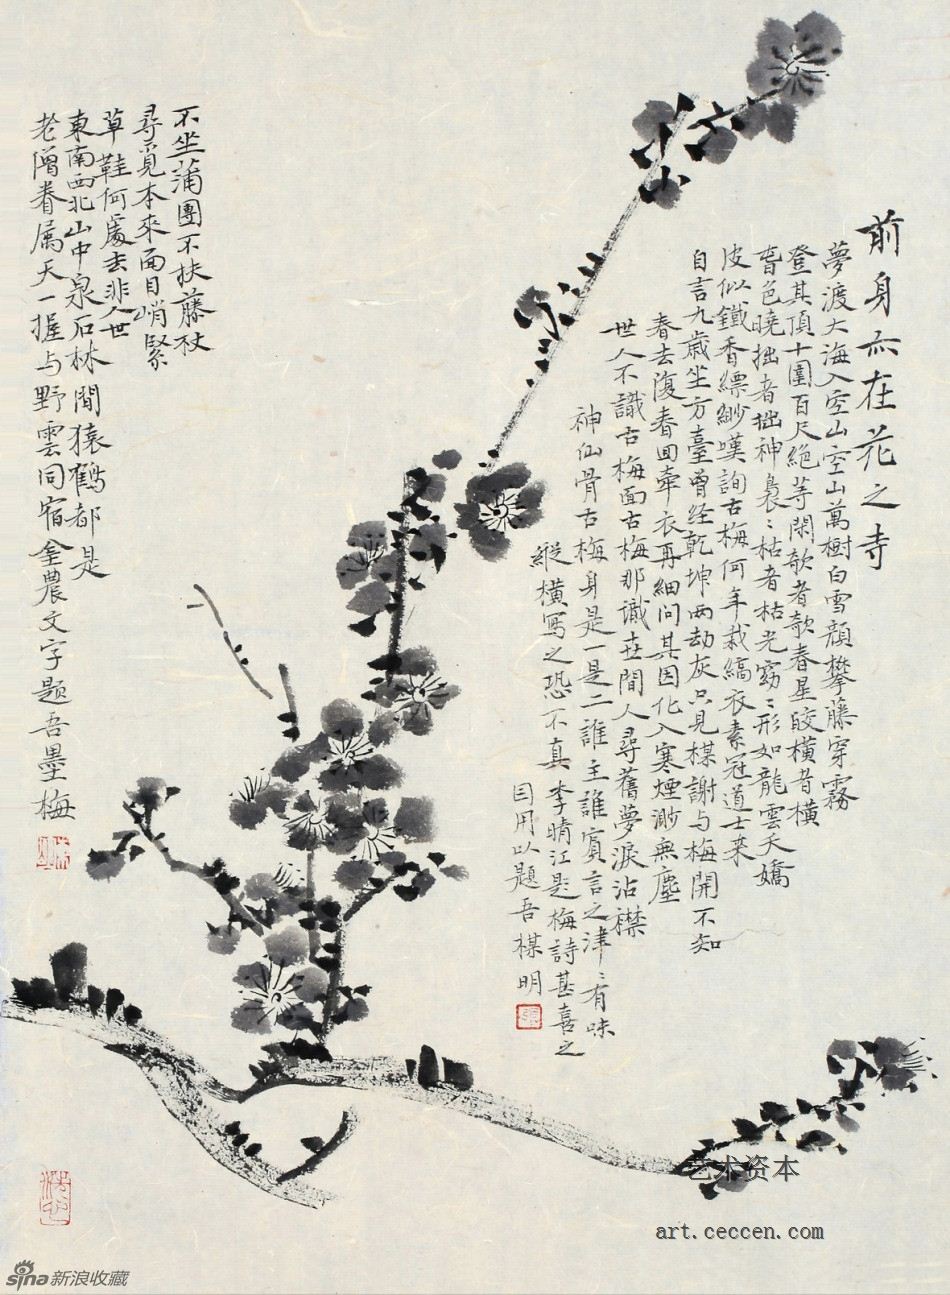 前身亦在花之寺
夢渡大海入空山空山萬樹白雪顏攀藤穿霧
登其頂十圍百尺絕等閑欹者欹春星皎橫者橫
暮色曉拙者拙神裊〻枯者枯光窈〻形如龍雲夭嬌
皮似鐵香縹緲嘆詢古梅何年栽縞衣素冠道士来
自言九歲坐方臺曾经乾坤兩劫灰只見楳謝与梅開不知
春去復春回牽衣再細问其因化入寒煙渺無塵
世人不識古梅面古梅那識世間人尋舊夢淚沾襟
神仙骨古梅身是一是二誰主誰賓言之津〻有味
縱橫寫之恐不真 李晴江是梅詩甚喜之
因用以題吾楳明
不坐蒲團不扶藤杖
尋覓本來面目峭緊
草鞋何處去非人世
東南西北山中泉石林間猿鶴都是
老僧眷属天一握与野雲同宿金農文字題吾墨梅
艺术资本
art.ceccen.com
sina新浪收藏